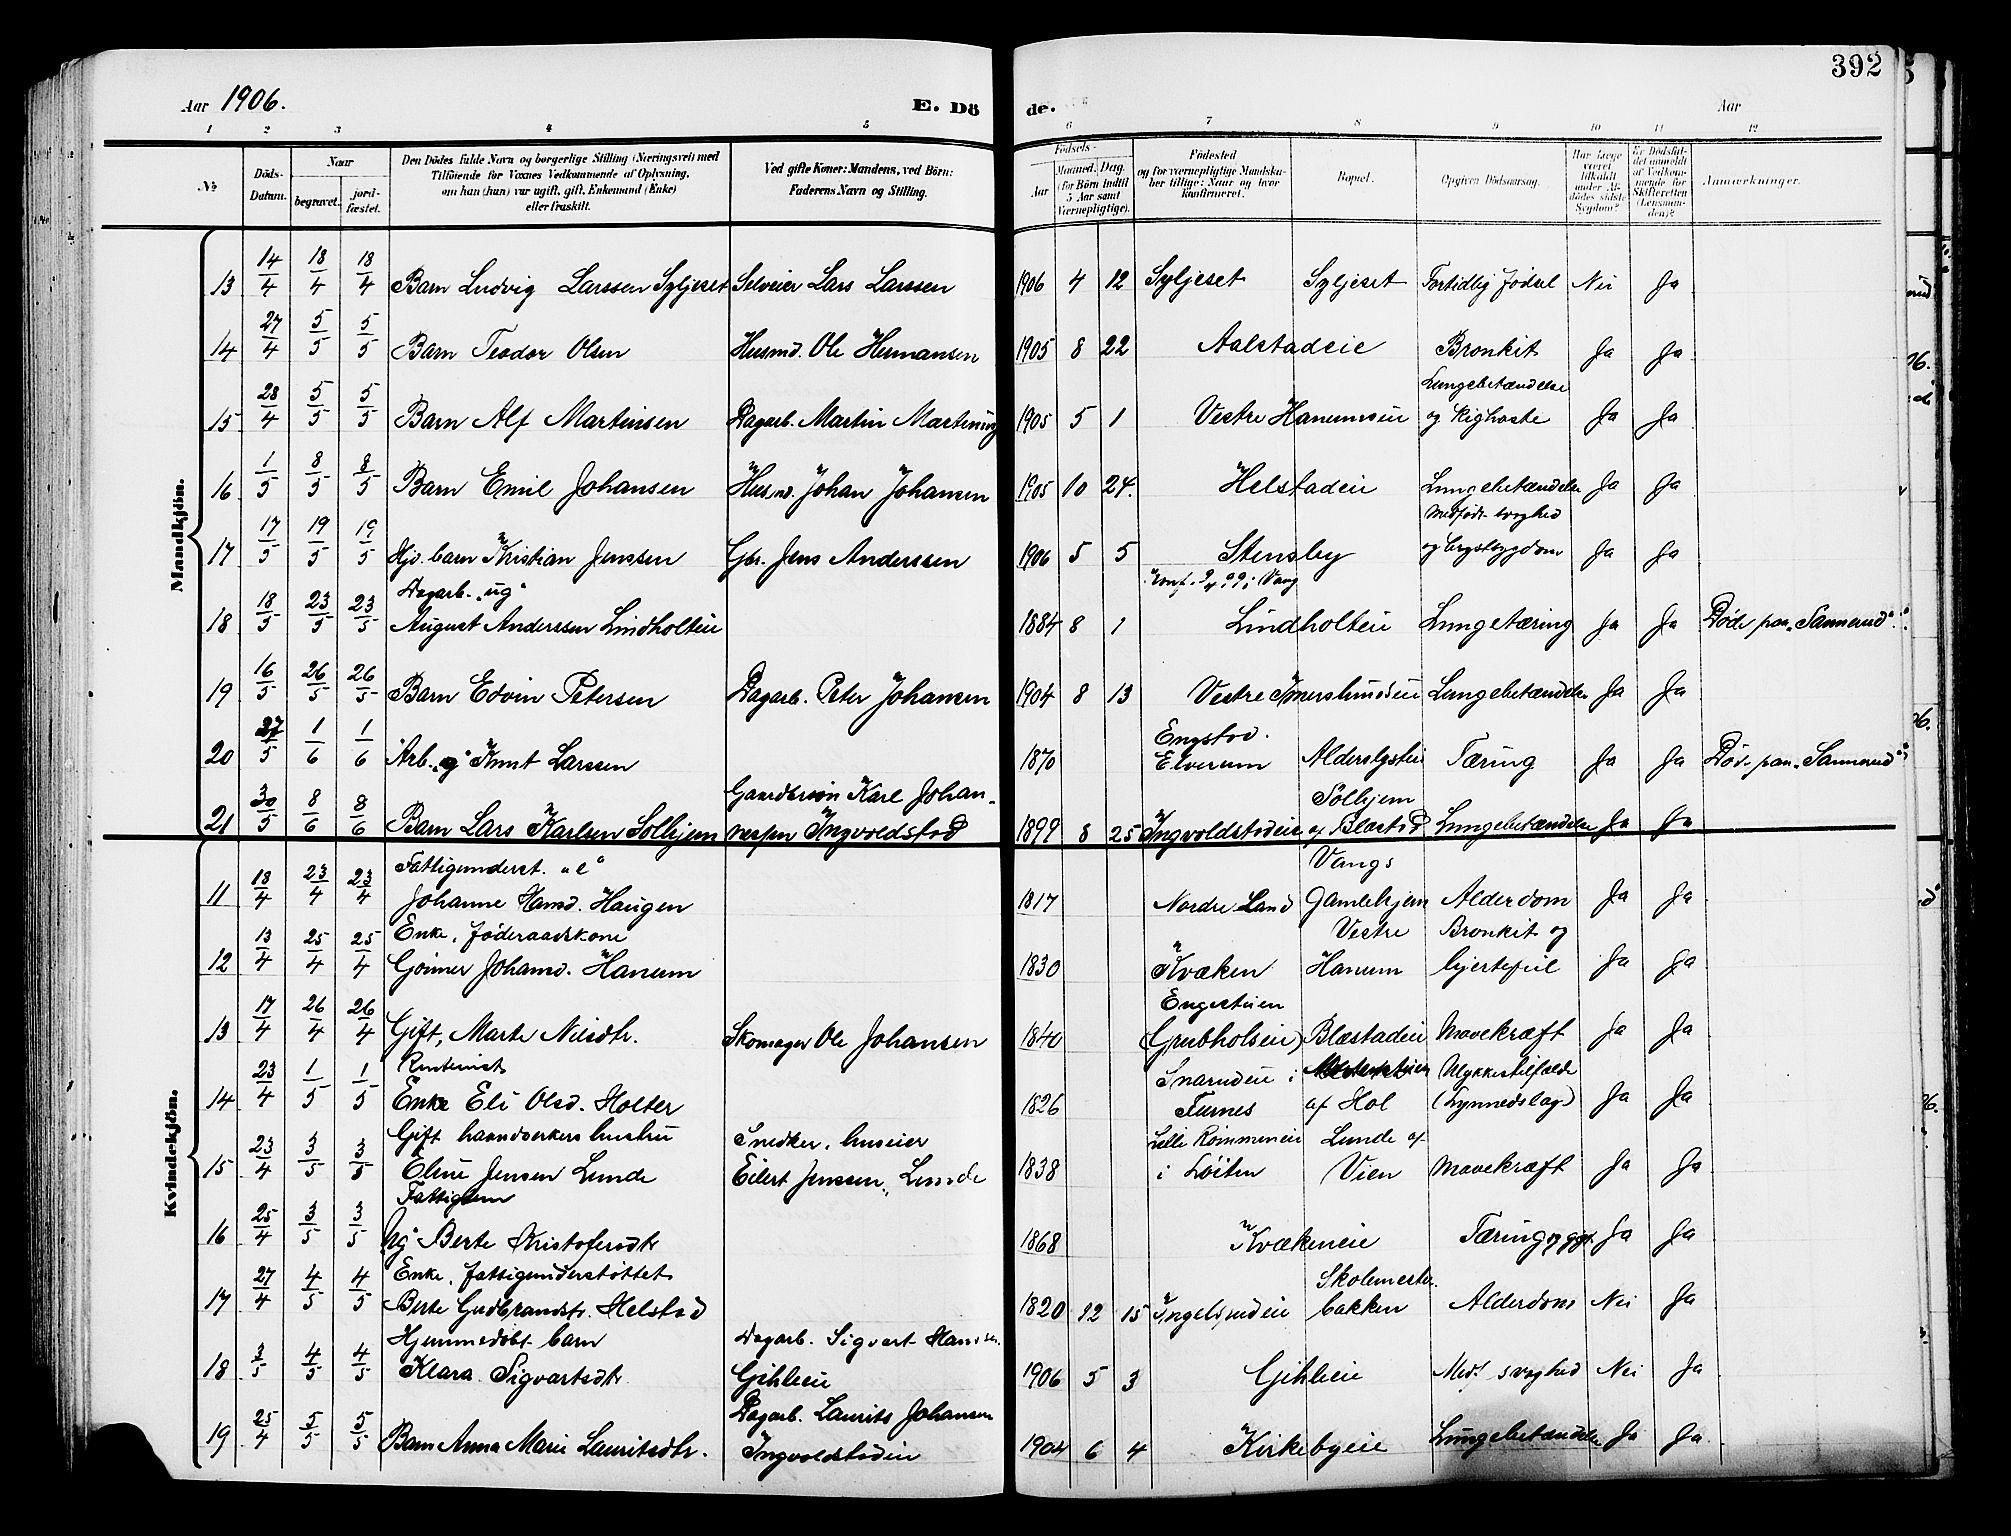 392
Aar 1906. E. Dö de. Aar
1 2 3 4 5 6 7 8 9 10 11 12
No. Döds-Datum. Naar begravet. jordfæstet. Den Dödes fulde Navn og borgerlige Stilling (Næringsvei) med Tilföiende for Voxnes Vedkommende af Oplysning, om han (hun) var ugift, gift, Enkemand (Enke) eller fraskilt. Ved gifte Koner: Mandens, ved Börn: Faderens Navn og Stilling. Födsels- Aar Maaned. Dag. (for Börn indtil 5 Aar samt Værnepligtige). Födested og for værnepligtige Mandskaber tillige: Naar og hvor konfirmeret. Bopæl. Opgiven Dödsaarsag. Har Læge været tilkaldt under Afdödes sidste Sygdom? Er Dödsfaldet anmeldt af Vedkommende for Skifteretten (Lensmanden)? Anmærkninger.
Mandkjön.
13 14/4 18/4 18/4 Barn Ludvig Larssen Syljeset Selveier Lars Larssen 1906 4 12 Syljeset Syljeset Fortidlig Fødsel Nei Ja
14 27/4 5/5 5/5 Barn Teodor Olsen Husmd. Ole Hermansen 1905 8 22 Aalstadeie Bronkit Ja Ja
15 28/4 5/5 5/5 Barn Alf Martinsen Dagarb. Martin 1905 5 1 Vestre Hanumseie Lungebetændelse og Kighoste Ja Ja
16 1/5 8/5 8/5 Barn Emil Johansen Husmd. Johan Johansen 1905 10 24. Helstadeie Lungebetændelse Ja Ja
17 17/5 19/5 19/5 Hjd. barn Kristian Jenssen Gbr. Jens Anderssen 1906 5 5 Stensby Medfødt svaghed og brystsygdom Ja Ja
18 18/5 23/5 23/5 Dagarb. "ug" August Anderssen Lindholteie 1884 8 1 Konf. 2/4 99 i Vang Lindholteie Lungetæring Ja Ja Døde paa "Sannerud".
19 16/5 26/5 26/5 Barn Edvin Petersen Dagarb. Peter Johansen 1904 8 13 Vestre Imerslundeie Lungebetændelse Ja Ja
20 27/5 1/6 1/6 Arb. "g" Knut Larssen 1870 Engstad. Elverum Alderslysteie Tæring Ja Ja Død paa "Sannerud"
21 30/5 8/6 8/6 Barn Lars Karlsen Solhjem Gaardbrüer Karl Johannessen Ingvoldstad 1899 8 25 Ingvoldstadeie Solhjem af Blæstad Lungebetændelse Ja Ja
Kvindekjön.
11 18/4 23/4 23/4 Fattigunderst. "e" Johanne Hansd. Haugen 1817 Nordre Land Vangs Gamlehjem Alderdom Ja Ja
12 13/4 25/4 25/4 Enke, Føderaadskone Goimer Johansd. Hanum 1830 Kvæken Vestre Hanum Bronkit og hjertefeil Ja Ja
13 17/4 26/4 26/4 Gift, Marte Nilsdtr. Skomager Ole Johansen 1840 Engestuen (Grubholseie) Blæstadeie Mavekræft Ja Ja
14 23/4 1/5 1/5 Rentenist Enke Eli Olsd. Holter 1826 Snarudeie i Furnes af Hol Ulykkestilfælde (Lynnedslag) Ja Ja
15 23/4 3/5 3/5 Gift haandverkers hustru Eline Jensen Lunde Snedker, huseier Eilert Jenssen, Lunde 1838 Lille Rommeneie i Løiten Lunde af Vien Mavekræft Ja Ja
16 25/4 3/5 3/5 Fattiglem "ug" Berte Kristofersdtr 1868 Kvækeneie Tæring Ja Ja
17 27/4 4/5 4/5 Enke, fattigunderstøttet Berte Gudbrandstr. Helstad 1820 12 15 Ingelsrudeie Skolemesterbakken Alderdom Nei Ja
18 3/5 4/5 4/5 Hjemmedøbt barn Klara Sigvartsdtr Dagarb. Sigvart Hansen. Gihleeie 1906 5 3 Gihleeie Medf. svaghed Nei Ja
19 25/4 5/5 5/5 Barn Anna Marie Lauritsdtr. Dagarb. Laurits Johansen Ingvoldstadeie 1904 6 4 Kirkebyeie Lungebetændelse Ja Ja